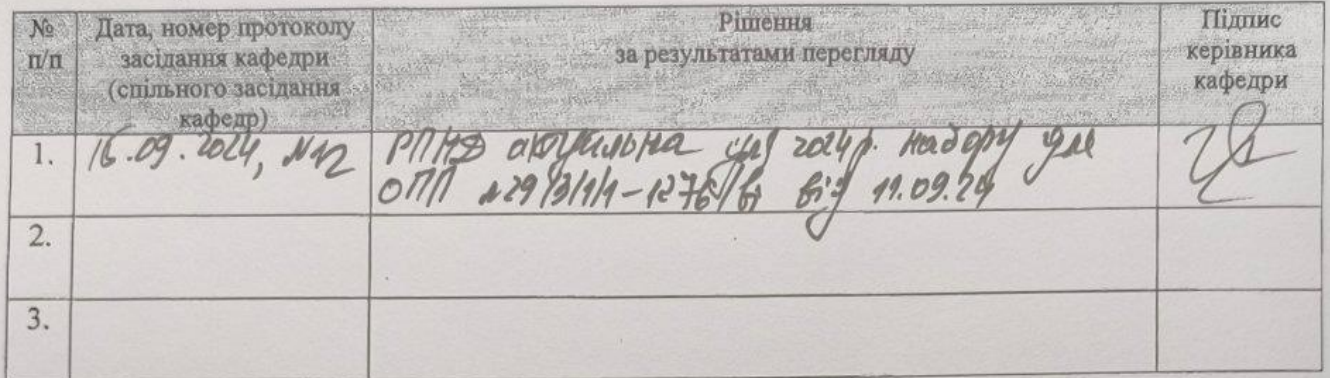 № п/п
Дата, номер протоколу засідання кафедри (спільного засідання кафедр)
Рішення за результатами перегляду
Підпис керівника кафедри
1.
16.09.2024, №12
РПНД актуальна для 2024р. набору для
ОПП №29/3/1/1-1276/ві від 11.09.24
2.
3.